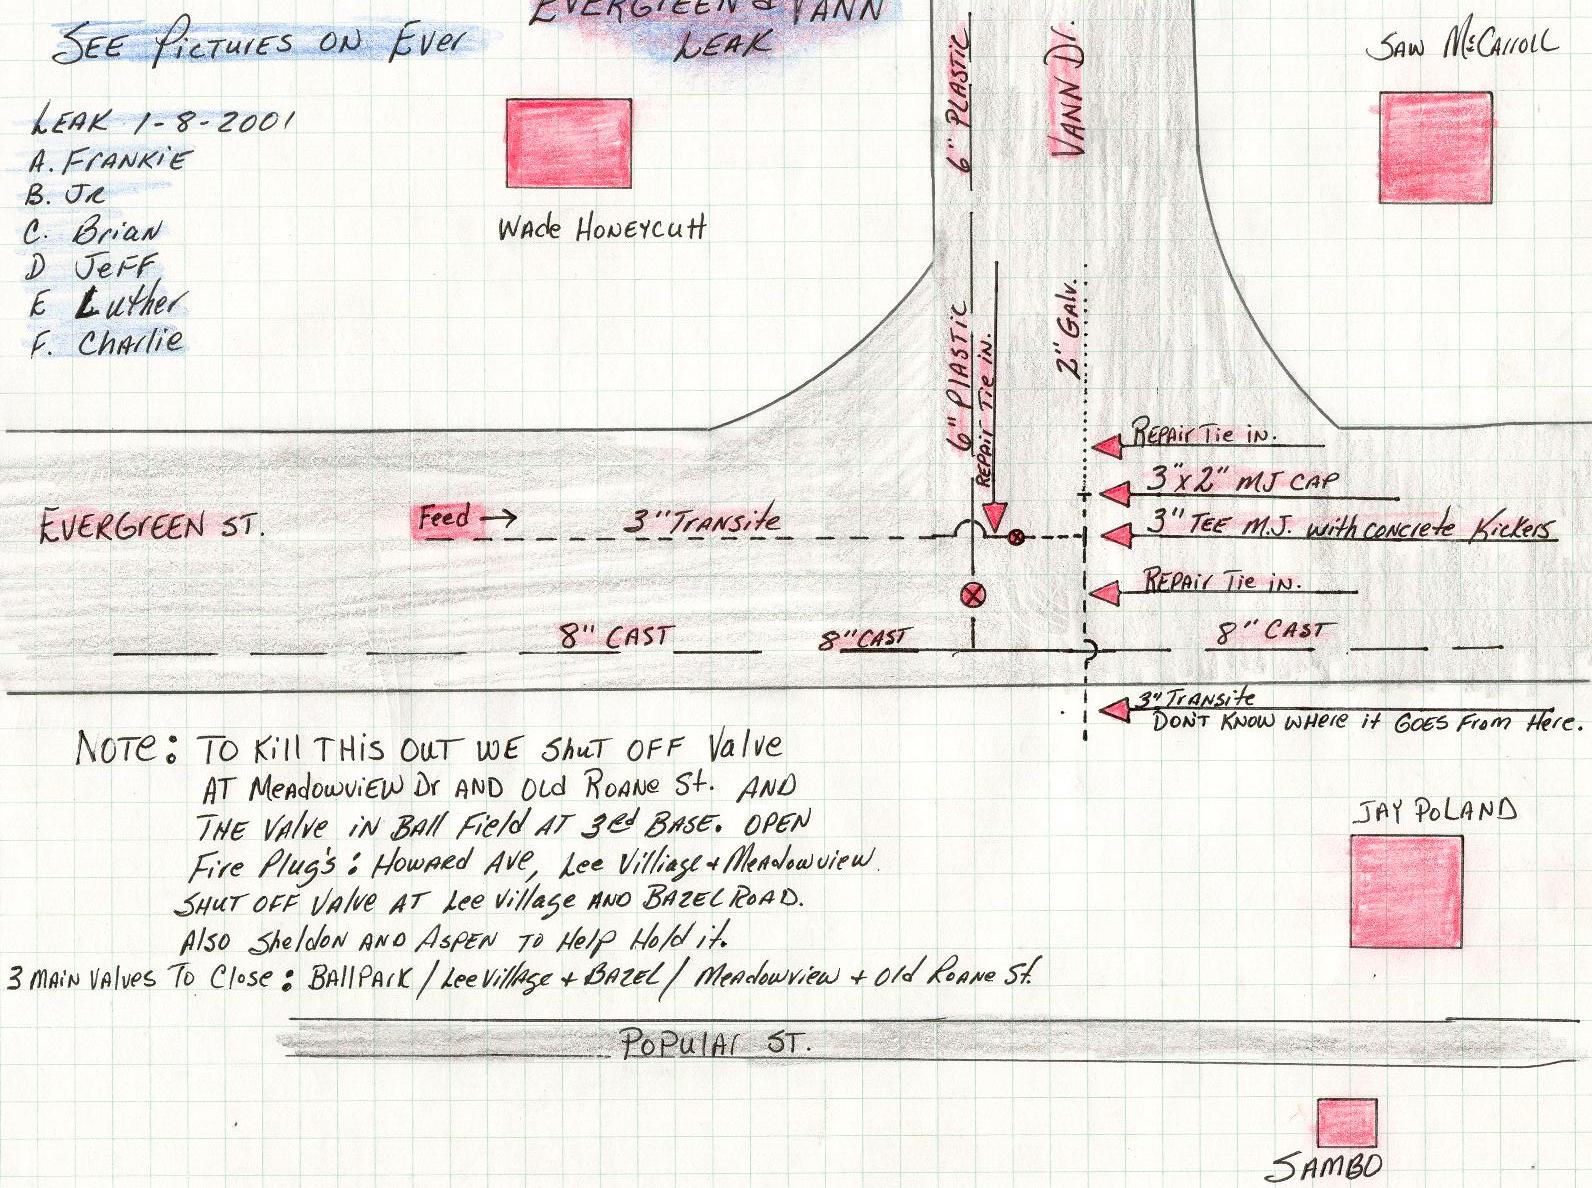 SEE Pictures on Ever
EVERGREEN & VANN
LEAK
LEAK 1-8-2001
A. FRANKIE
B. JR
C. Brian
D JeFF
E Luther
F. Charlie
Wade HONEYCUTT
SAW McCARROLL
6" PLASTIC
VANN Dr.
6" PLASTIC
REPAIR Tie in.
2" Galv.
REPAIR Tie in.
3"x2" MJ CAP
3" TEE M.J. with concrete Kickers
REPAIR Tie in.
EVERGREEN ST.
Feed →
3" Transite
8" CAST
8" CAST
8" CAST
3" Transite
DON'T KNOW WHERE it GOES From Here.
NOTE: TO Kill THis OUT WE SHUT OFF Valve
AT MEADOWVIEW Dr AND Old ROANE St. AND
THE VALVE iN BALL Field AT 3rd BASE. OPEN
Fire Plug's: HOWARD AVE, Lee Villiage + Meadowview.
SHUT OFF Valve AT Lee Village AND BAZEL ROAD.
Also Sheldon AND ASPEN TO Help Hold it.
3 MAIN VALVES To Close: BALLPARK / Lee Village + BAZEL / Meadowview + Old ROANE St.
JAY POLAND
POPULAR ST.
SAMBO